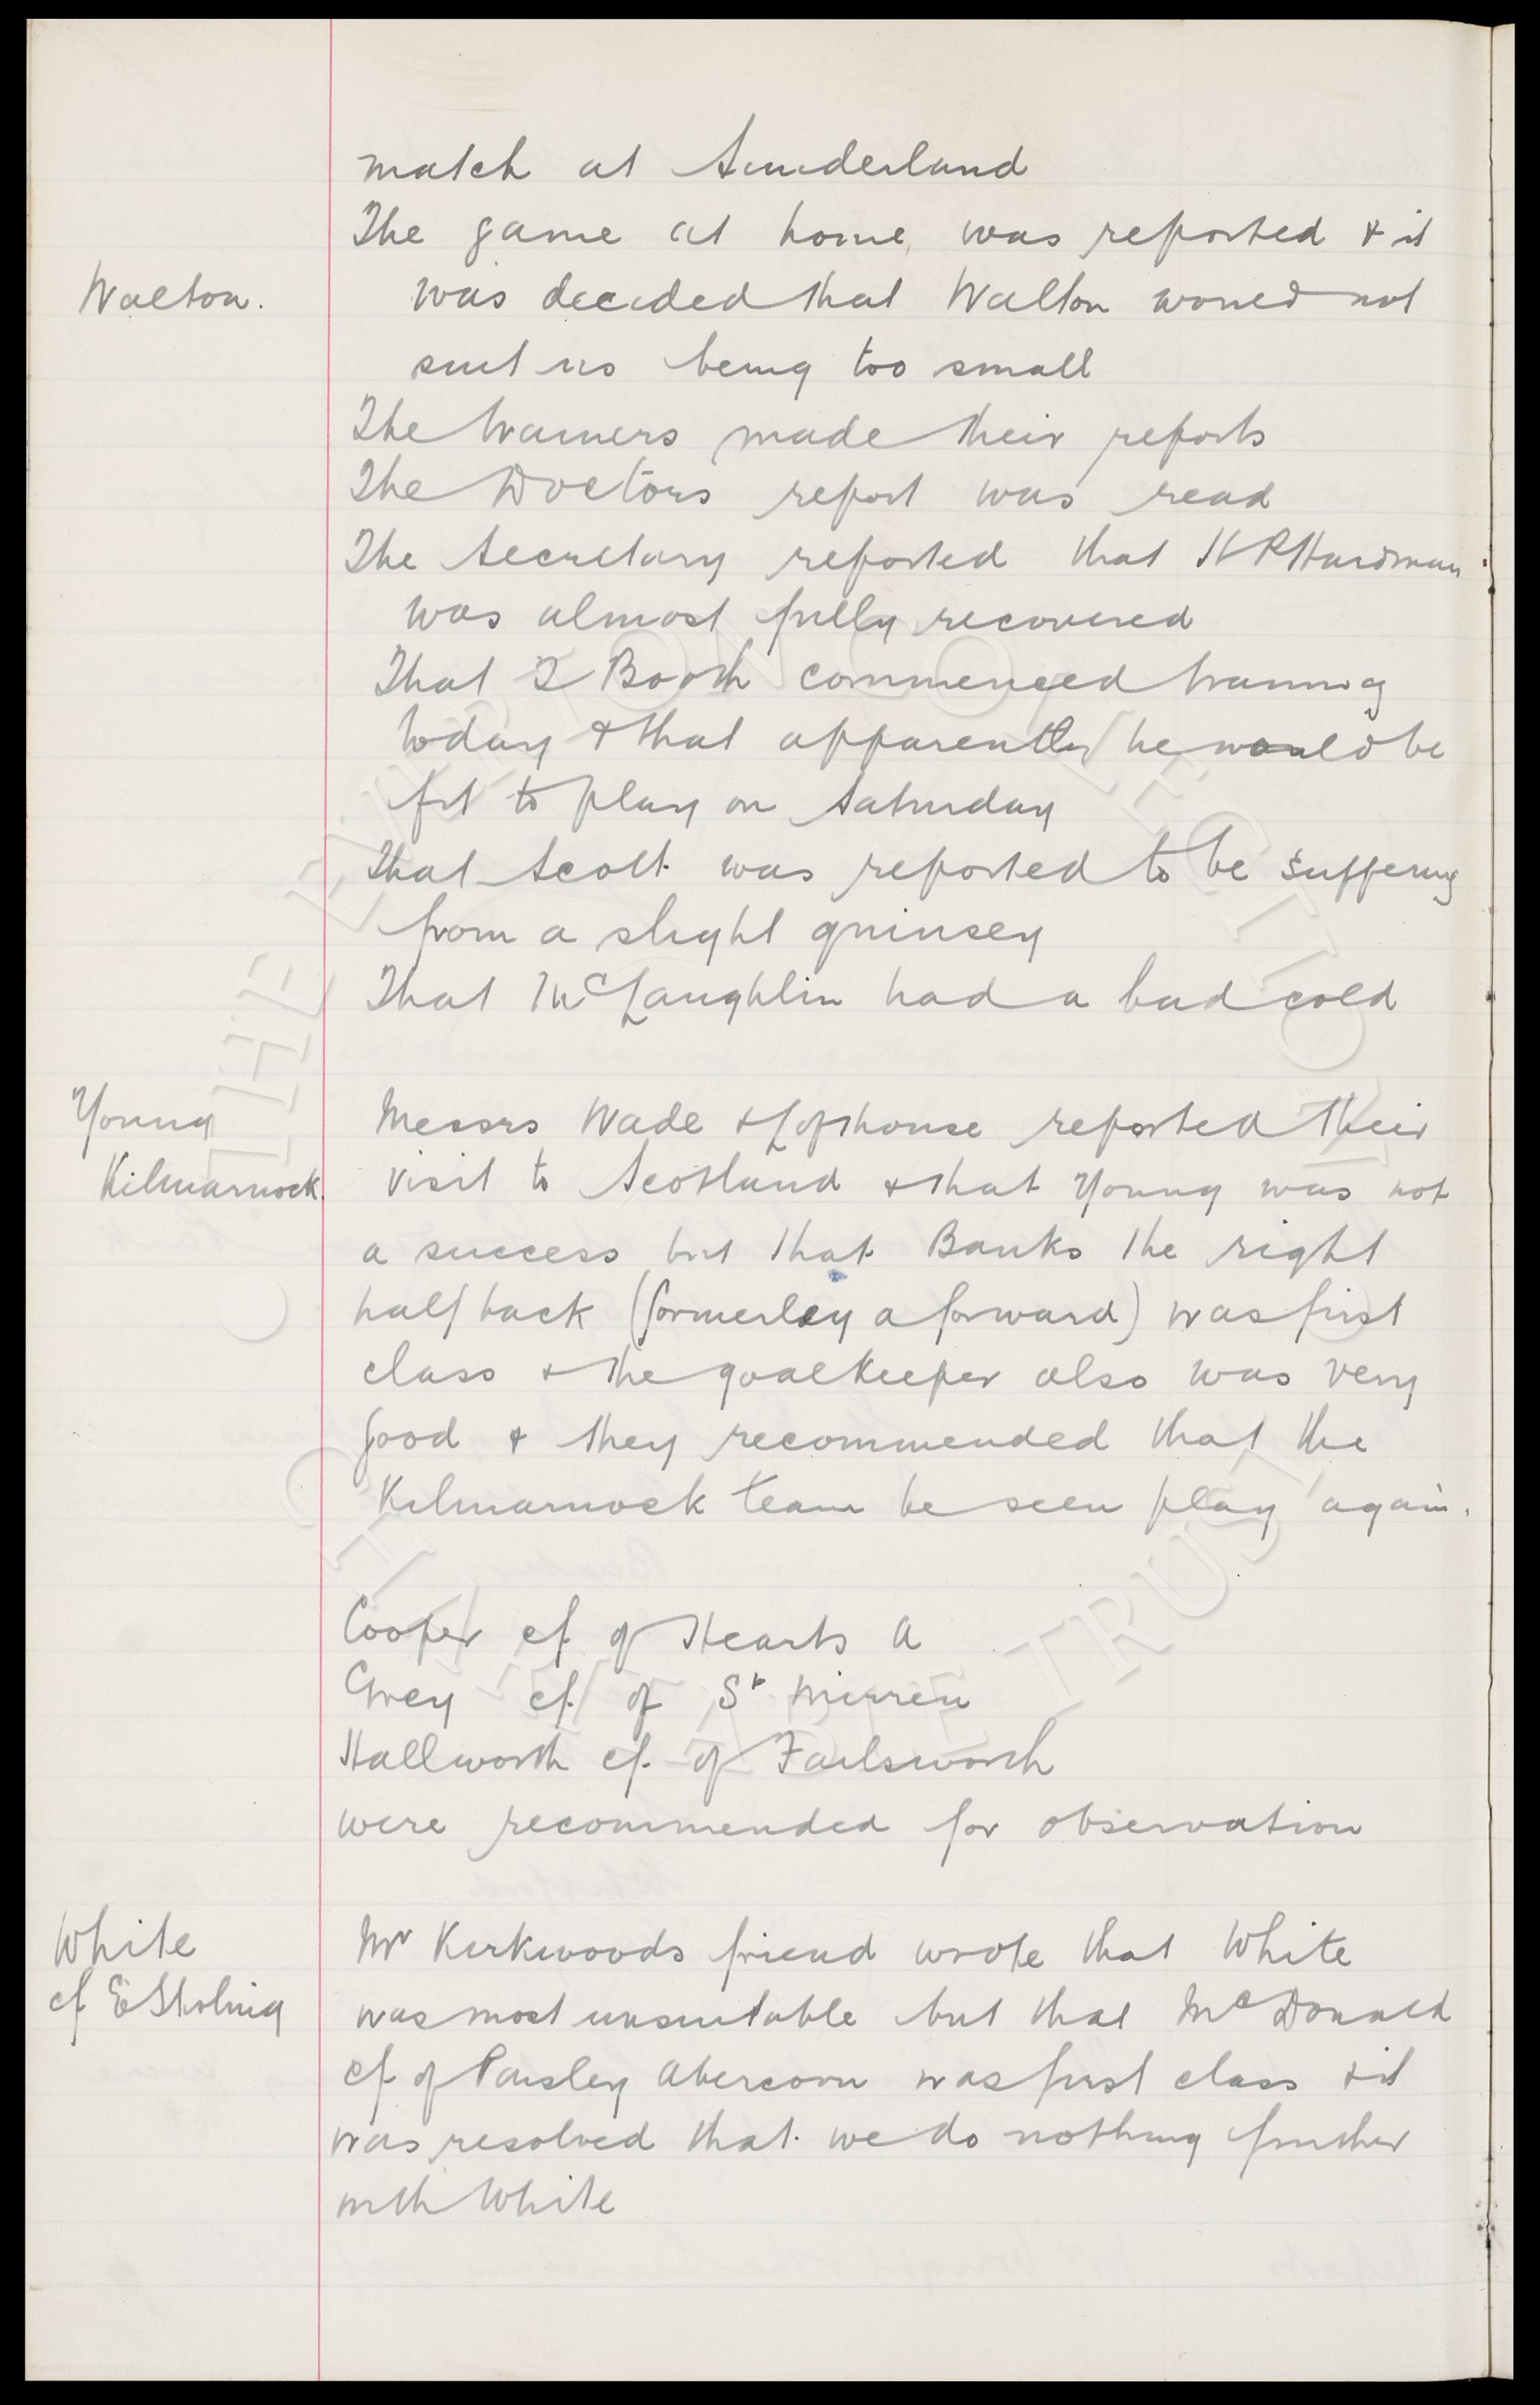 match at Sunderland
The game at home was reported & it
Walton.
was decided that Walton would not
suit us being too small
The trainers made their reports
The Doctors report was read
The Secretary reported that H P Hardman
was almost fully recovered
That T Booth commenced training
today & that apparently he would be
fit to play on Saturday
That Scott was reported to be suffering
from a slight quinsey
That McLaughlin had a bad cold
Young
Kilmarnock.
Messrs Wade & Lofthouse reported their
visit to Scotland & that Young was not
a success but that Banks the right
half back (formerley a forward) was first
class & the goalkeeper also was very
good & they recommended that the
Kilmarnock team be seen play again.
Cooper cf. of Hearts A
Grey cf. of St Mirren
Hallworth cf. of Failsworth
were recommended for observation
White
cf E Stirling
Mr Kirkwoods friend wrote that White
was most unsuitable but that McDonald
cf. of Paisley Abercorn was first class & it
was resolved that we do nothing further
with White
THE EVERTON COLLECTION
CHARITABLE TRUST